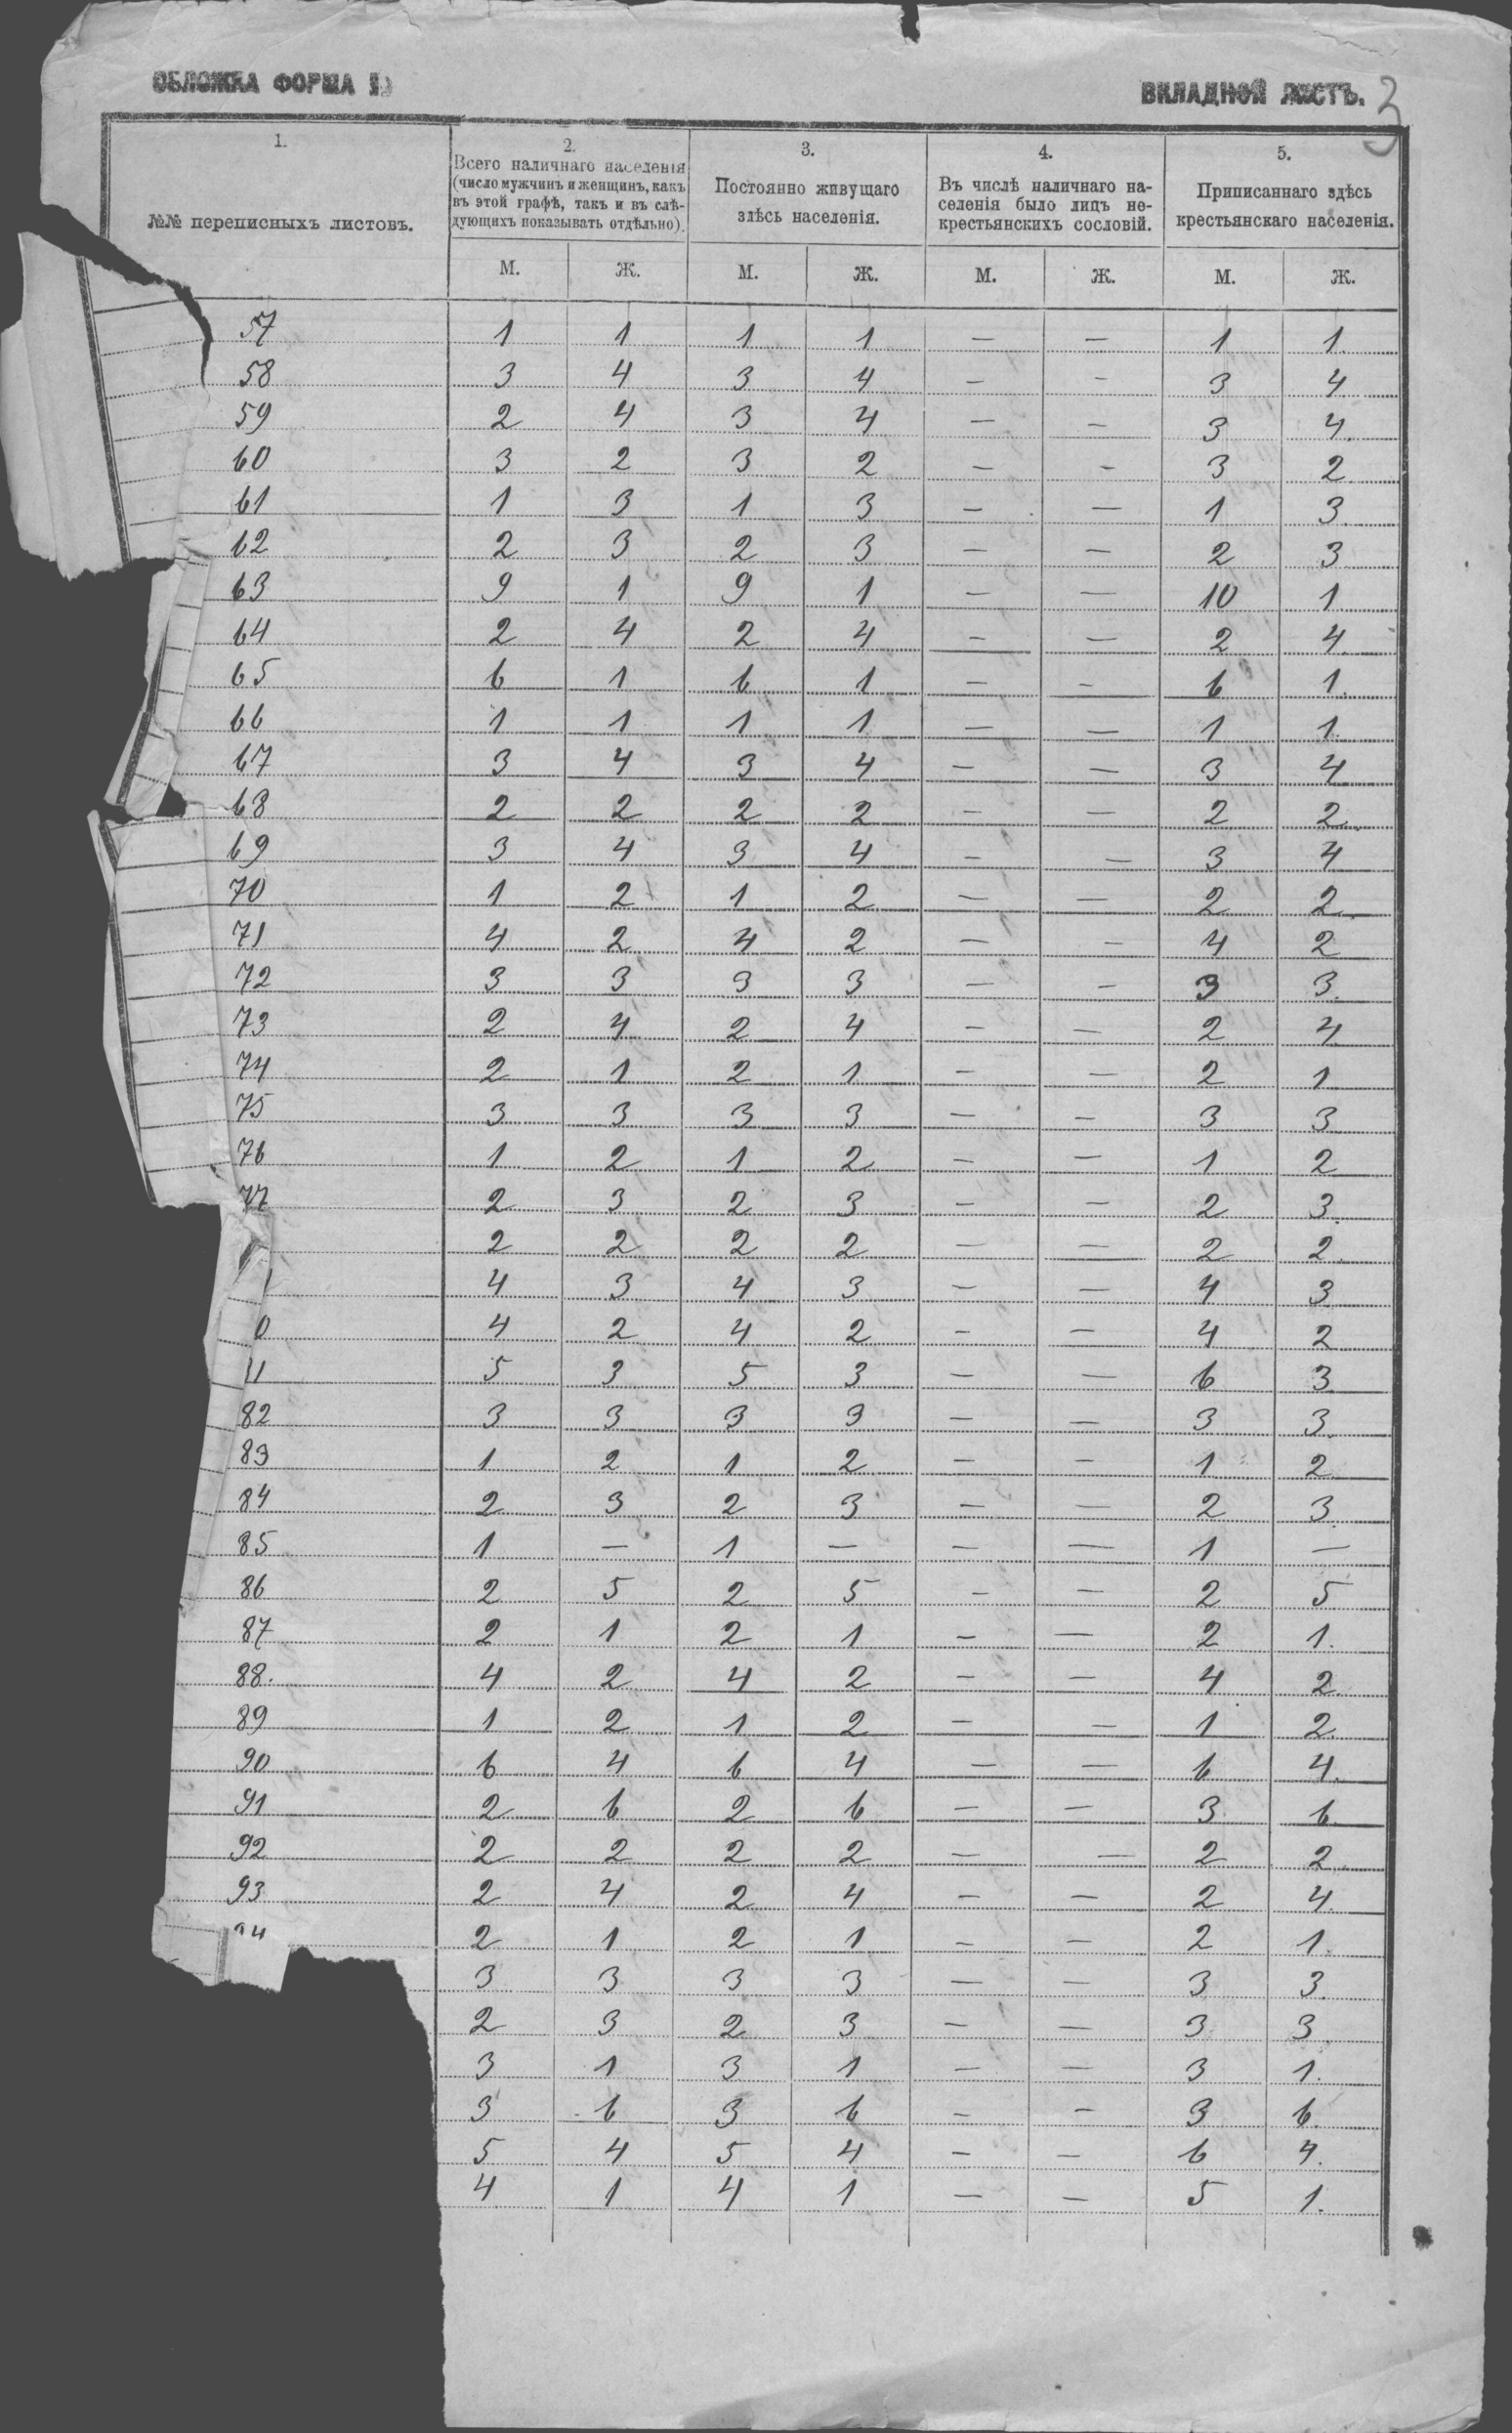 ОБЛОЖКА ФОРМА 1)
ВКЛАДНОЙ ЛИСТЪ. 3
1. 2. 3. 4. 5.
№№ переписныхъ листовъ.
Всего наличнаго населенія
(число мужчинъ и женщинъ, какъ
въ этой графѣ, такъ и въ слѣ-
дующихъ показывать отдѣльно).
Постоянно живущаго
здѣсь населенія.
Въ числѣ наличнаго на-
селенія было лицъ не-
крестьянскихъ сословій.
Приписаннаго здѣсь
крестьянскаго населенія.
М. Ж. М. Ж. М. Ж. М. Ж.
57 1 1 1 1 — — 1 1.
58 3 4 3 4 — — 3 4
59 2 4 3 4 — — 3 4.
60 3 2 3 2 — — 3 2.
61 1 3 1 3 — — 1 3.
62 2 3 2 3 — — 2 3
63 9 1 9 1 — — 10 1
64 2 4 2 4 — — 2 4.
65 6 1 6 1 — — 6 1.
66 1 1 1 1 — — 1 1.
67 3 4 3 4 — — 3 4
68 2 2 2 2 — — 2 2.
69 3 4 3 4 — — 3 4
70 1 2 1 2 — — 2 2.
71 4 2 4 2 — — 4 2
72 3 3 3 3 — — 3 3.
73 2 4 2 4 — — 2 4
74 2 1 2 1 — — 2 1
75 3 3 3 3 — — 3 3
76 1 2 1 2 — — 1 2
77 2 3 2 3 — — 2 3.
2 2 2 2 — — 2 2.
4 3 4 3 — — 4 3
0 4 2 4 2 — — 4 2
1 5 3 5 3 — — 6 3
82 3 3 3 3 — — 3 3.
83 1 2 1 2 — — 1 2
84 2 3 2 3 — — 2 3.
85 1 — 1 — — — 1 —
86 2 5 2 5 — — 2 5
87 2 1 2 1 — — 2 1.
88. 4 2 4 2 — — 4 2.
89 1 2 1 2 — — 1 2.
90 6 4 6 4 — — 6 4.
91 2 6 2 6 — — 3 6.
92 2 2 2 2 — — 2 2.
93 2 4 2 4 — — 2 4.
94 2 1 2 1 — — 2 1.
3 3 3 3 — — 3 3.
2 3 2 3 — — 3 3.
3 1 3 1 — — 3 1.
3 6 3 6 — — 3 6.
5 4 5 4 — — 6 4.
4 1 4 1 — — 5 1.